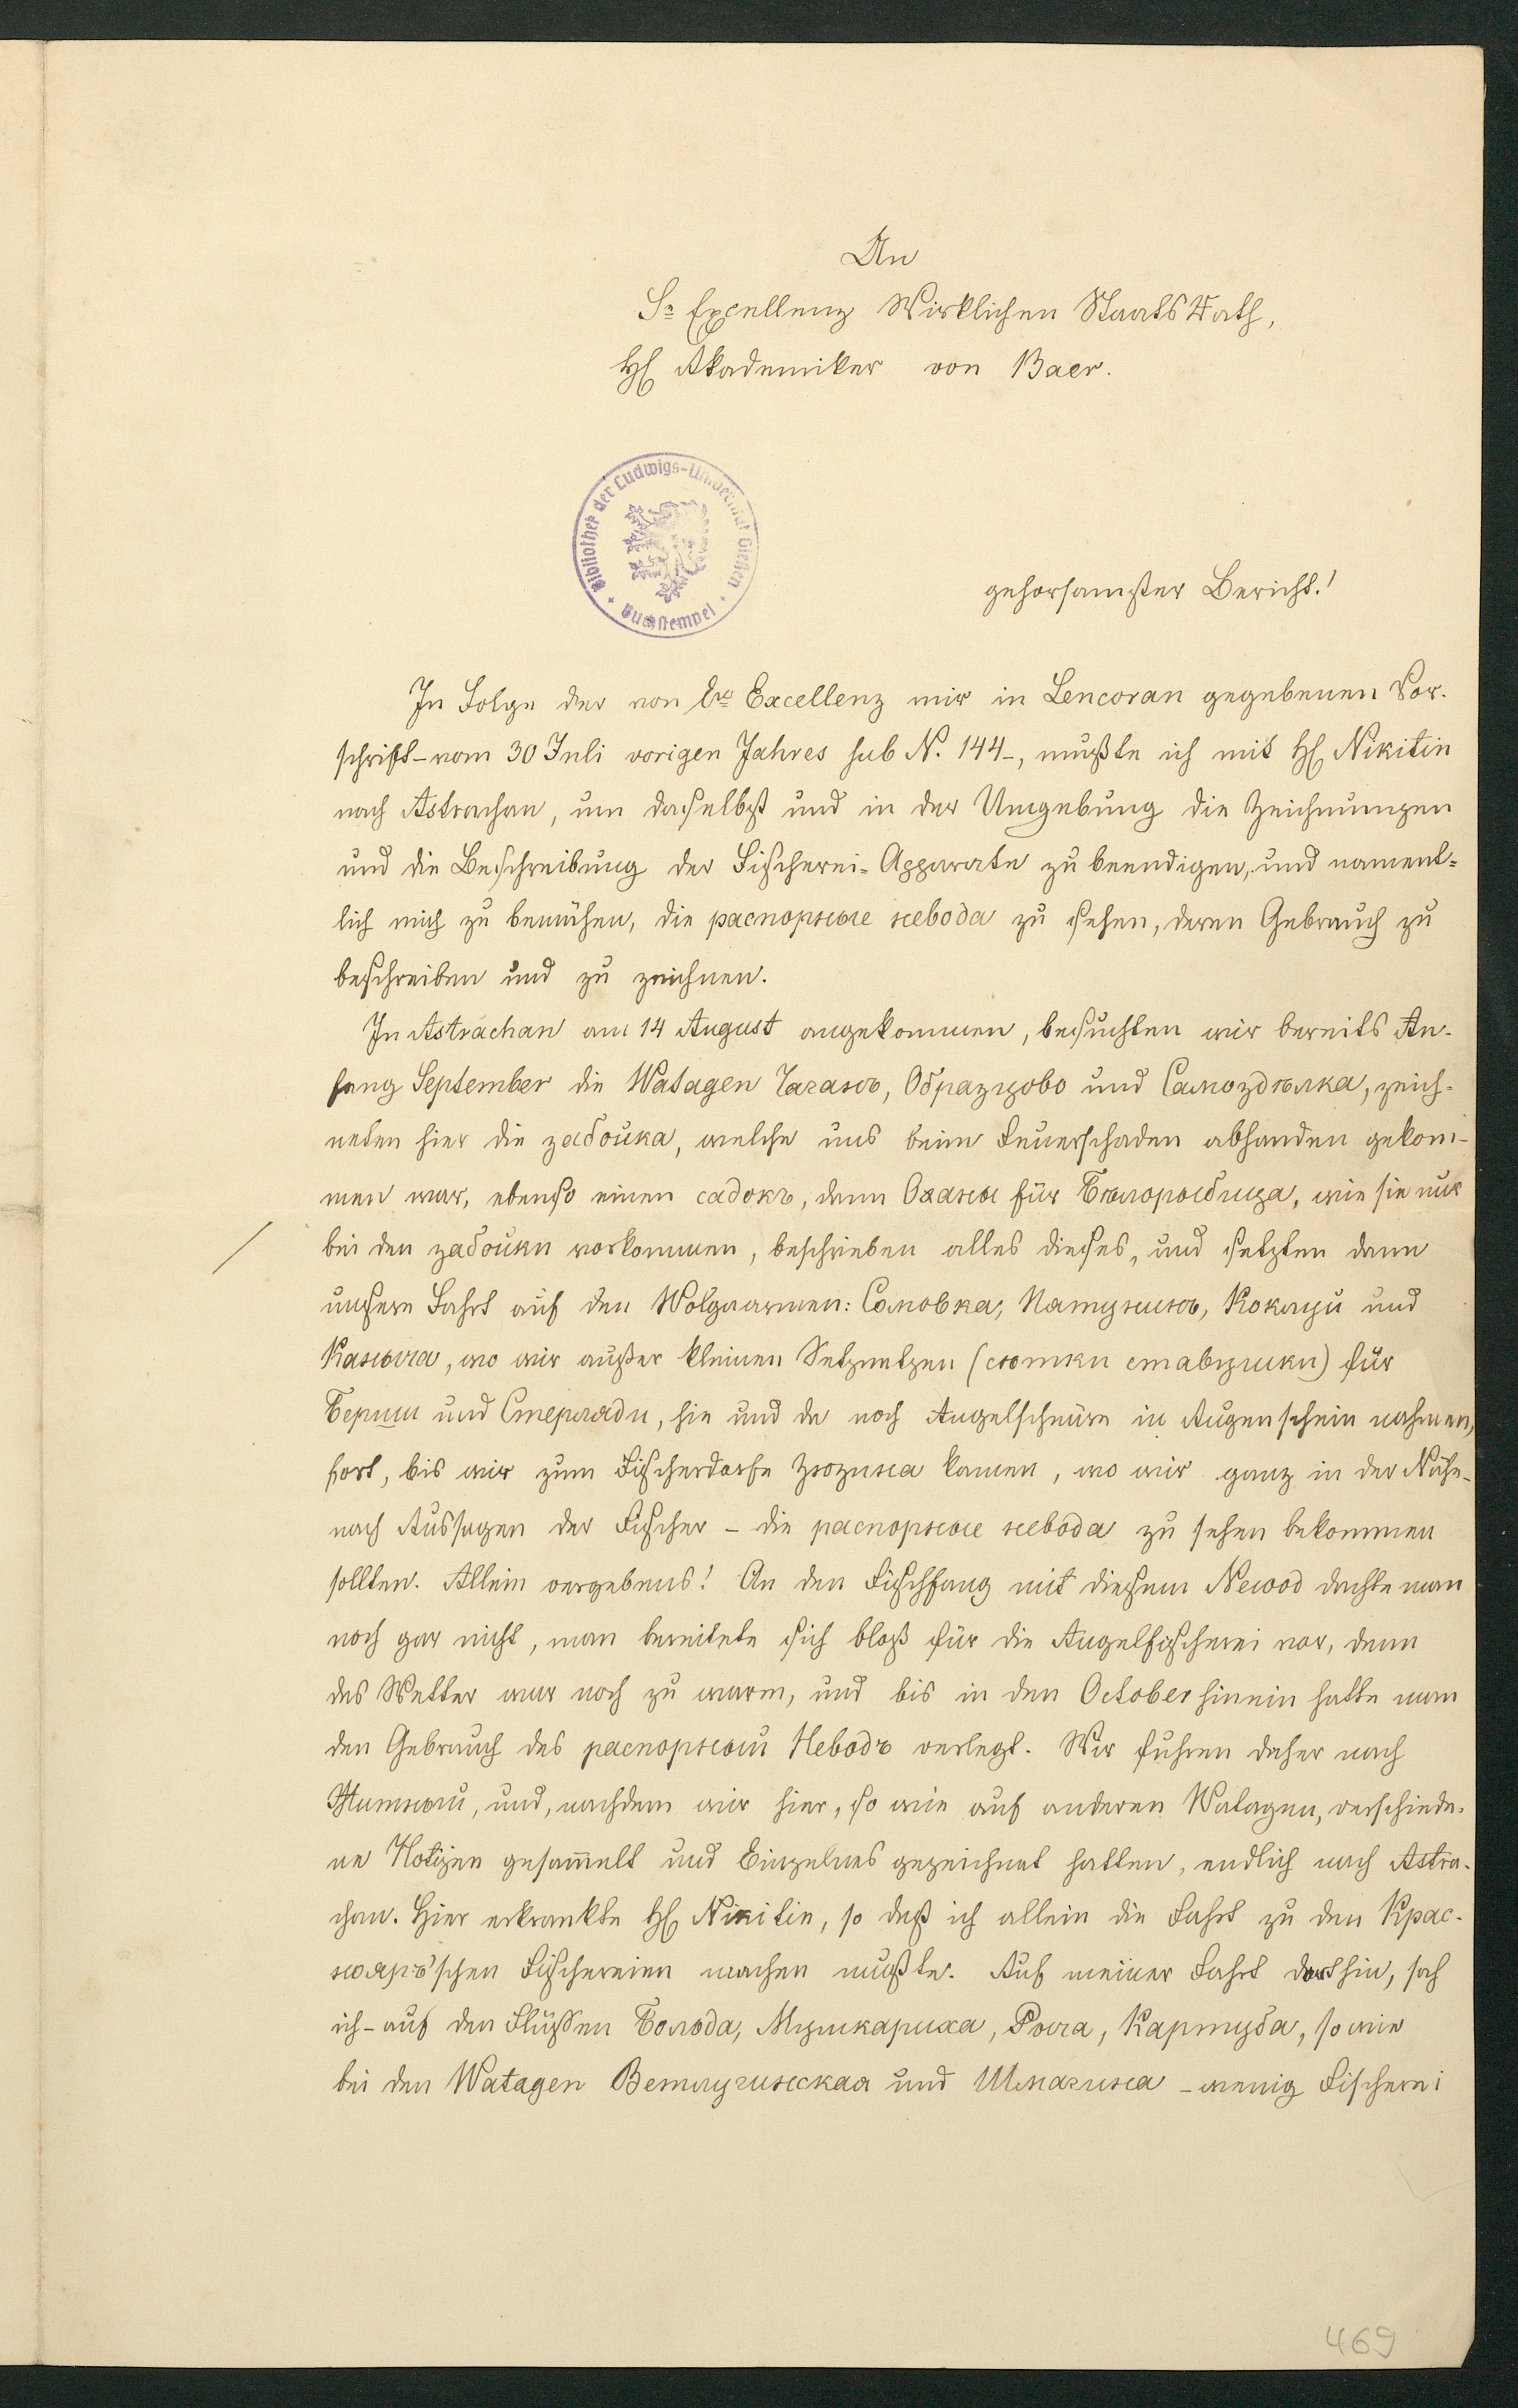 An
Sr Excellenz Wirklichen Staats Rath,
H Akademiker von Baer.
Bibliothek der Ludwigs-Universität Gießen
Buchstempel
gehorsamster Bericht!
In Folge der von Er Excellenz mir in Lencoran gegebenen Vor-
schrift - vom 30 Juli vorigen Jahres sub N. 144 -, mußte ich mit H Nikitin
nach Astrachan, um daselbst und in der Umgebung die Zeichnungen
und die Beschreibung der Fischerei-Apparate zu beendigen, und nament-
lich mich zu bemühen, die распорные невода zu sehen, deren Gebrauch zu
beschreiben und zu zeichnen.
In Astrachan am 14 August angekommen, besuchten wir bereits An-
fang September die Watagen Чаганъ, Образцово und Самоздѣлка, zeich-
neten hier die забойка, welche uns beim Feuerschaden abhanden gekom-
men war, ebenso einen садокъ, dann Оханы für Бѣлорыбица, wie sie nur
bei den забойки vorkommen, beschrieben alles dieses, und setzten dann
unsere Fahrt auf den Wolgaarmen: Сомовка, und
Каныча, wo wir außer kleinen Setznetzen (сѣтки ставушки) für
Берши und Стерляди, hie und da noch Angelschnüre in Augenschein nahmen,
fort, bis wir zum Fischerdorfe Зюзина kamen, wo wir ganz in der Nähe -
nach Aussagen der Fischer - die распорные невода zu sehen bekommen
sollten. Allein vergebens! An den Fischfang mit diesem Newod dachte man
noch gar nicht, man bereitete sich bloß für die Angelfischerei vor, denn
das Wetter war noch zu warm, und bis in den October hinein hatte man
den Gebrauch des распорный Неводъ verlegt. Wir fuhren daher nach
Житный, und, nachdem wir hier, so wie auf anderen Watagen, verschiede-
ne Notizen gesam̄elt und Einzelnes gezeichnet hatten, endlich nach Astra-
chan. Hier erkrankte H Nikitin, so daß ich allein die Fahrt zu den Крас-
нояръ'schen Fischereien machen mußte. Auf meiner Fahrt dorthin, sah
ich - auf den Flüssen Болода, Рыча, Картуба, so wie
bei den Watagen Ветлугинская und Шмагина - wenig Fischerei
469